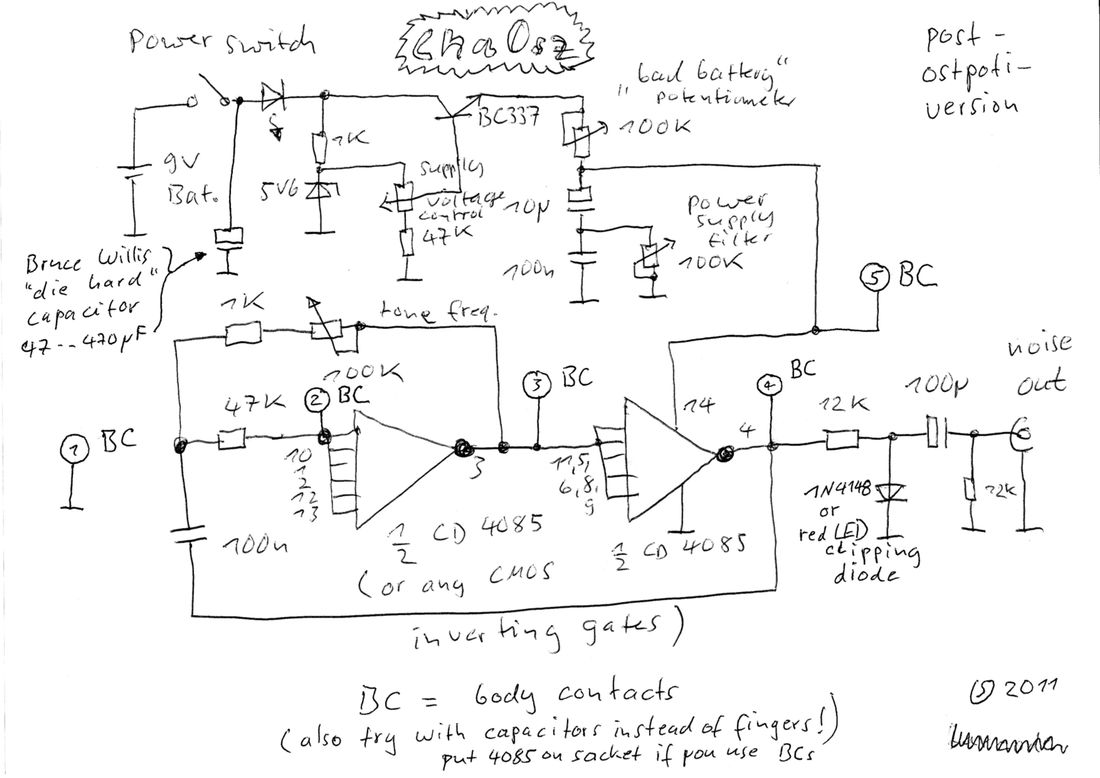 Power switch
ChaOsz
post-
ostpoti-
version
"bad battery"
potentiometer
100K
BC337
1K
9V
Bat.
5V6
supply
voltage
control
47K
10µ
100n
power
supply
filter
100K
Bruce Willis
"die hard"
capacitor
47--470µF
1K
tone freq.
100K
5 BC
noise
out
47K
2 BC
3 BC
4 BC
1 BC
14
4
12K
100µ
10
1
2
12
13
3
11,5,
6,8,
9
1N4148
or
red LED
clipping
diode
22K
100n
1/2 CD 4085
(or any CMOS
inverting gates)
1/2 CD 4085
BC = body contacts
(also try with capacitors instead of fingers!)
put 4085 on socket if you use BCs
(S) 2011